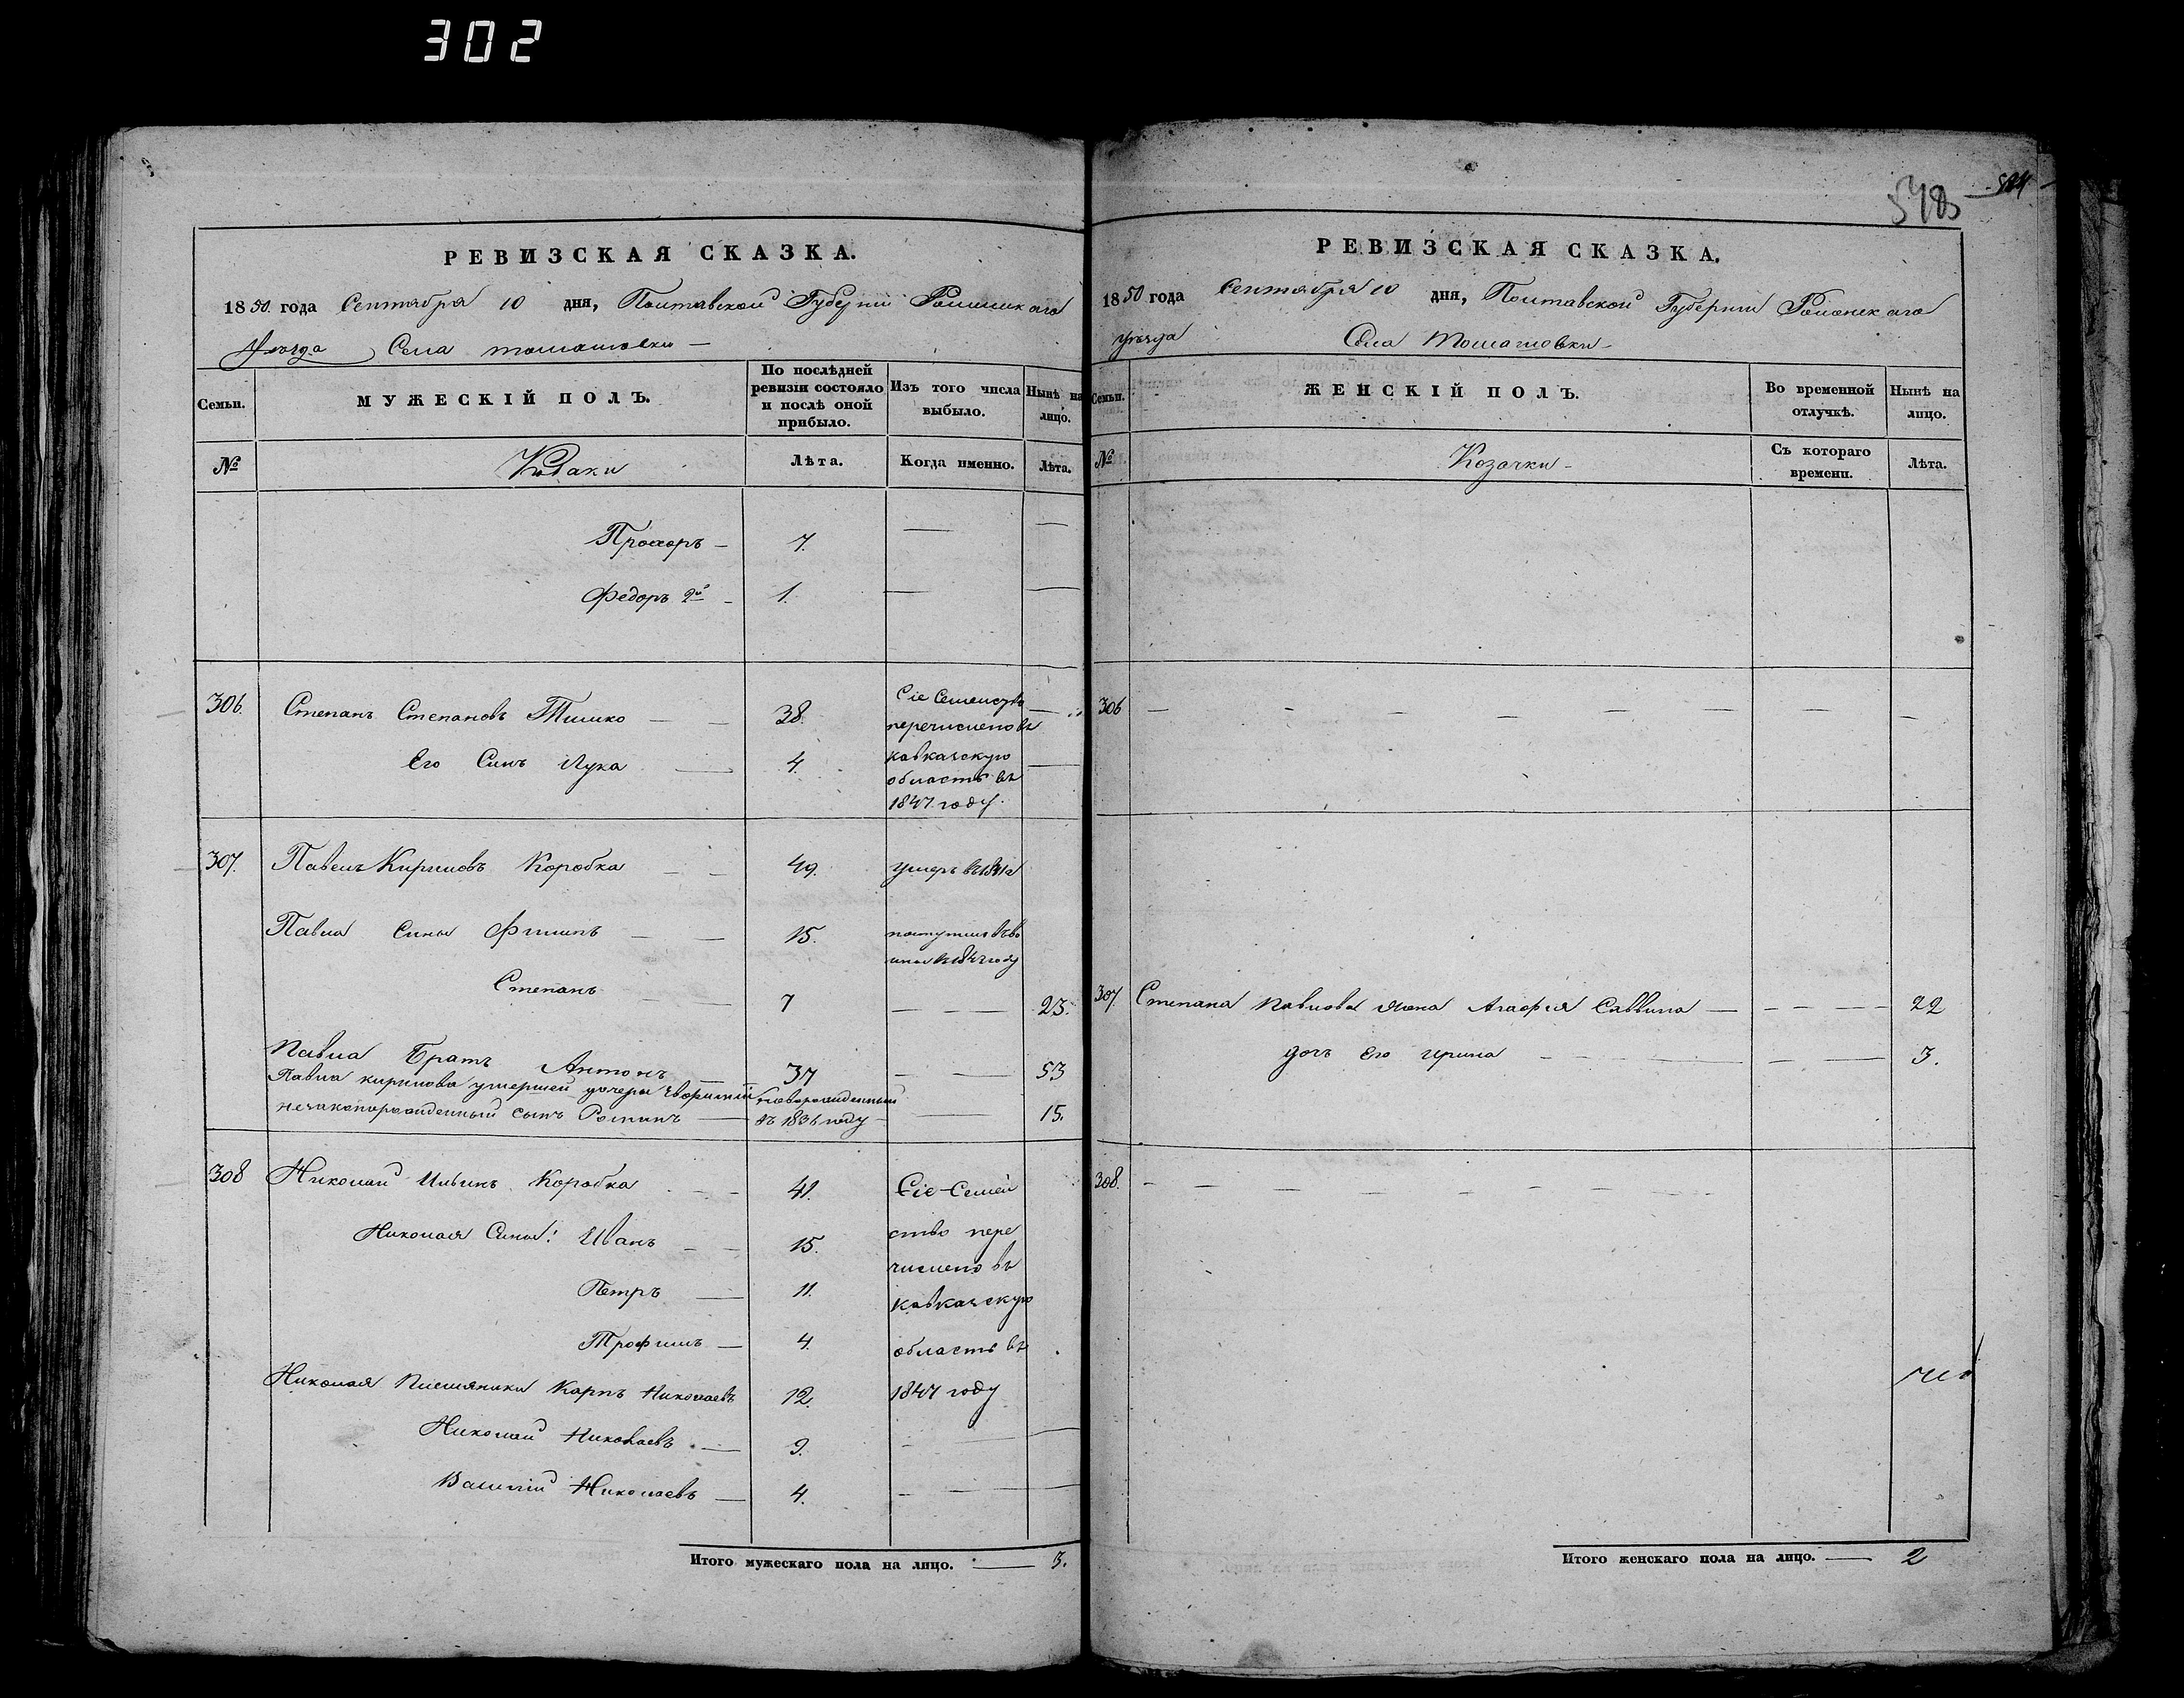 302
РЕВИЗСКАЯ СКАЗКА.
1850 года Сентября 10 дня, Полтавской Губерніи Роменскаго
Уѣзда Села Томашовки
Семьи. МУЖЕСКІЙ ПОЛЪ. По послѣдней ревизіи состояло и послѣ оной прибыло. Изъ того числа выбыло. Нынѣ на лицо.
№ Козаки Лѣта. Когда именно. Лѣта.
Прохоръ — 7. —
Федоръ 2й — 1. —
306. Степанъ Степановъ Тимко — — 38. Сіе Семейство
перечислено въ
Его Синъ Лука — 4. кавказскую
область въ
1847 году.
307. Павелъ Кириловъ Коробка — — 49. умеръ въ 1841 г
Павла Сины Филипъ — — 15.
Степанъ — — 7 — — — 23.
Павла Братъ Антонъ 37 — — 53
Павла кирилова умершей дочери незаконнорожденный Сынъ Романъ — новорожденный въ 1836 году — — 15.
308 Николай Ильинъ Коробка — — 41. Сіе Семей
Николая Сины: Иванъ — — 15. ство пере
числено въ
Петръ — 11. кавказскую
Трофимъ — 4. область въ
Николая Племяники Карпъ Николаевъ 12. 1847 году
Николай Николаевъ — 9. —
Василій Николаевъ — 4. —
Итого мужескаго пола на лицо. — 3.
РЕВИЗСКАЯ СКАЗКА.
1850 года Сентября 10 дня, Полтавской Губерніи Роменскаго
уѣзда Села Томашовки
Семьи. ЖЕНСКІЙ ПОЛЪ. Во временной отлучкѣ. Нынѣ на лицо.
№ Козачки Съ котораго времени. Лѣта.
306 — — — — — — — — — —
307. Степана Павлова жена Агафія Саввина — — — — 22
дочь Его Ирина — — — — 3.
308. — — — — — — — —
Итого женскаго пола на лицо. — 2